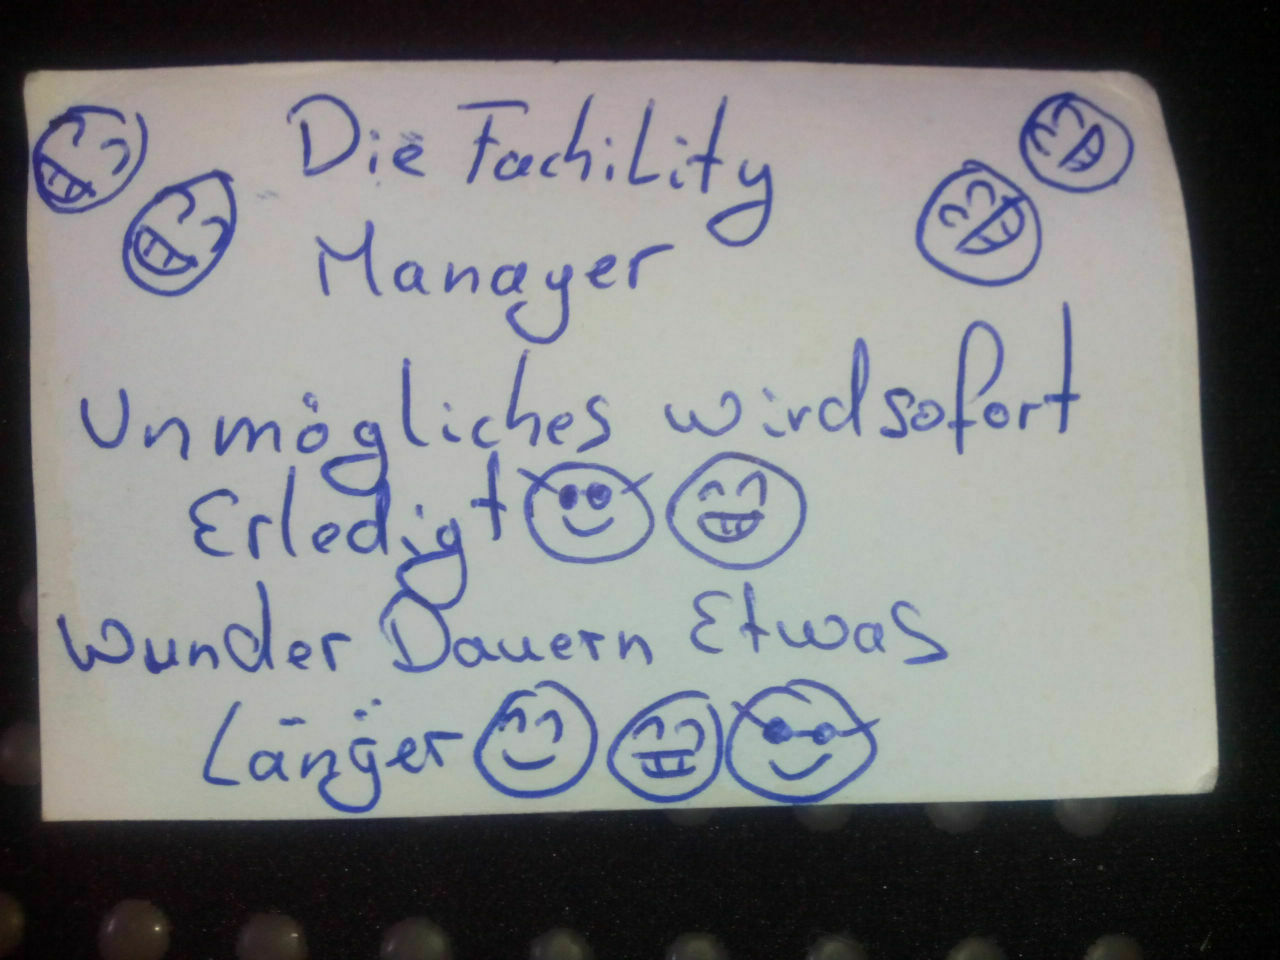 Die Fachility
Manager
Unmögliches wird sofort
Erledigt
Wunder Dauern Etwas
Länger